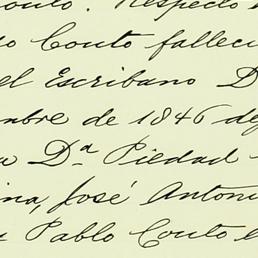 Respecto
Couto falleci
el Escribano D
mbre de 1846 de
a Dª Piedad
ina, José Antoni
Pablo Couto